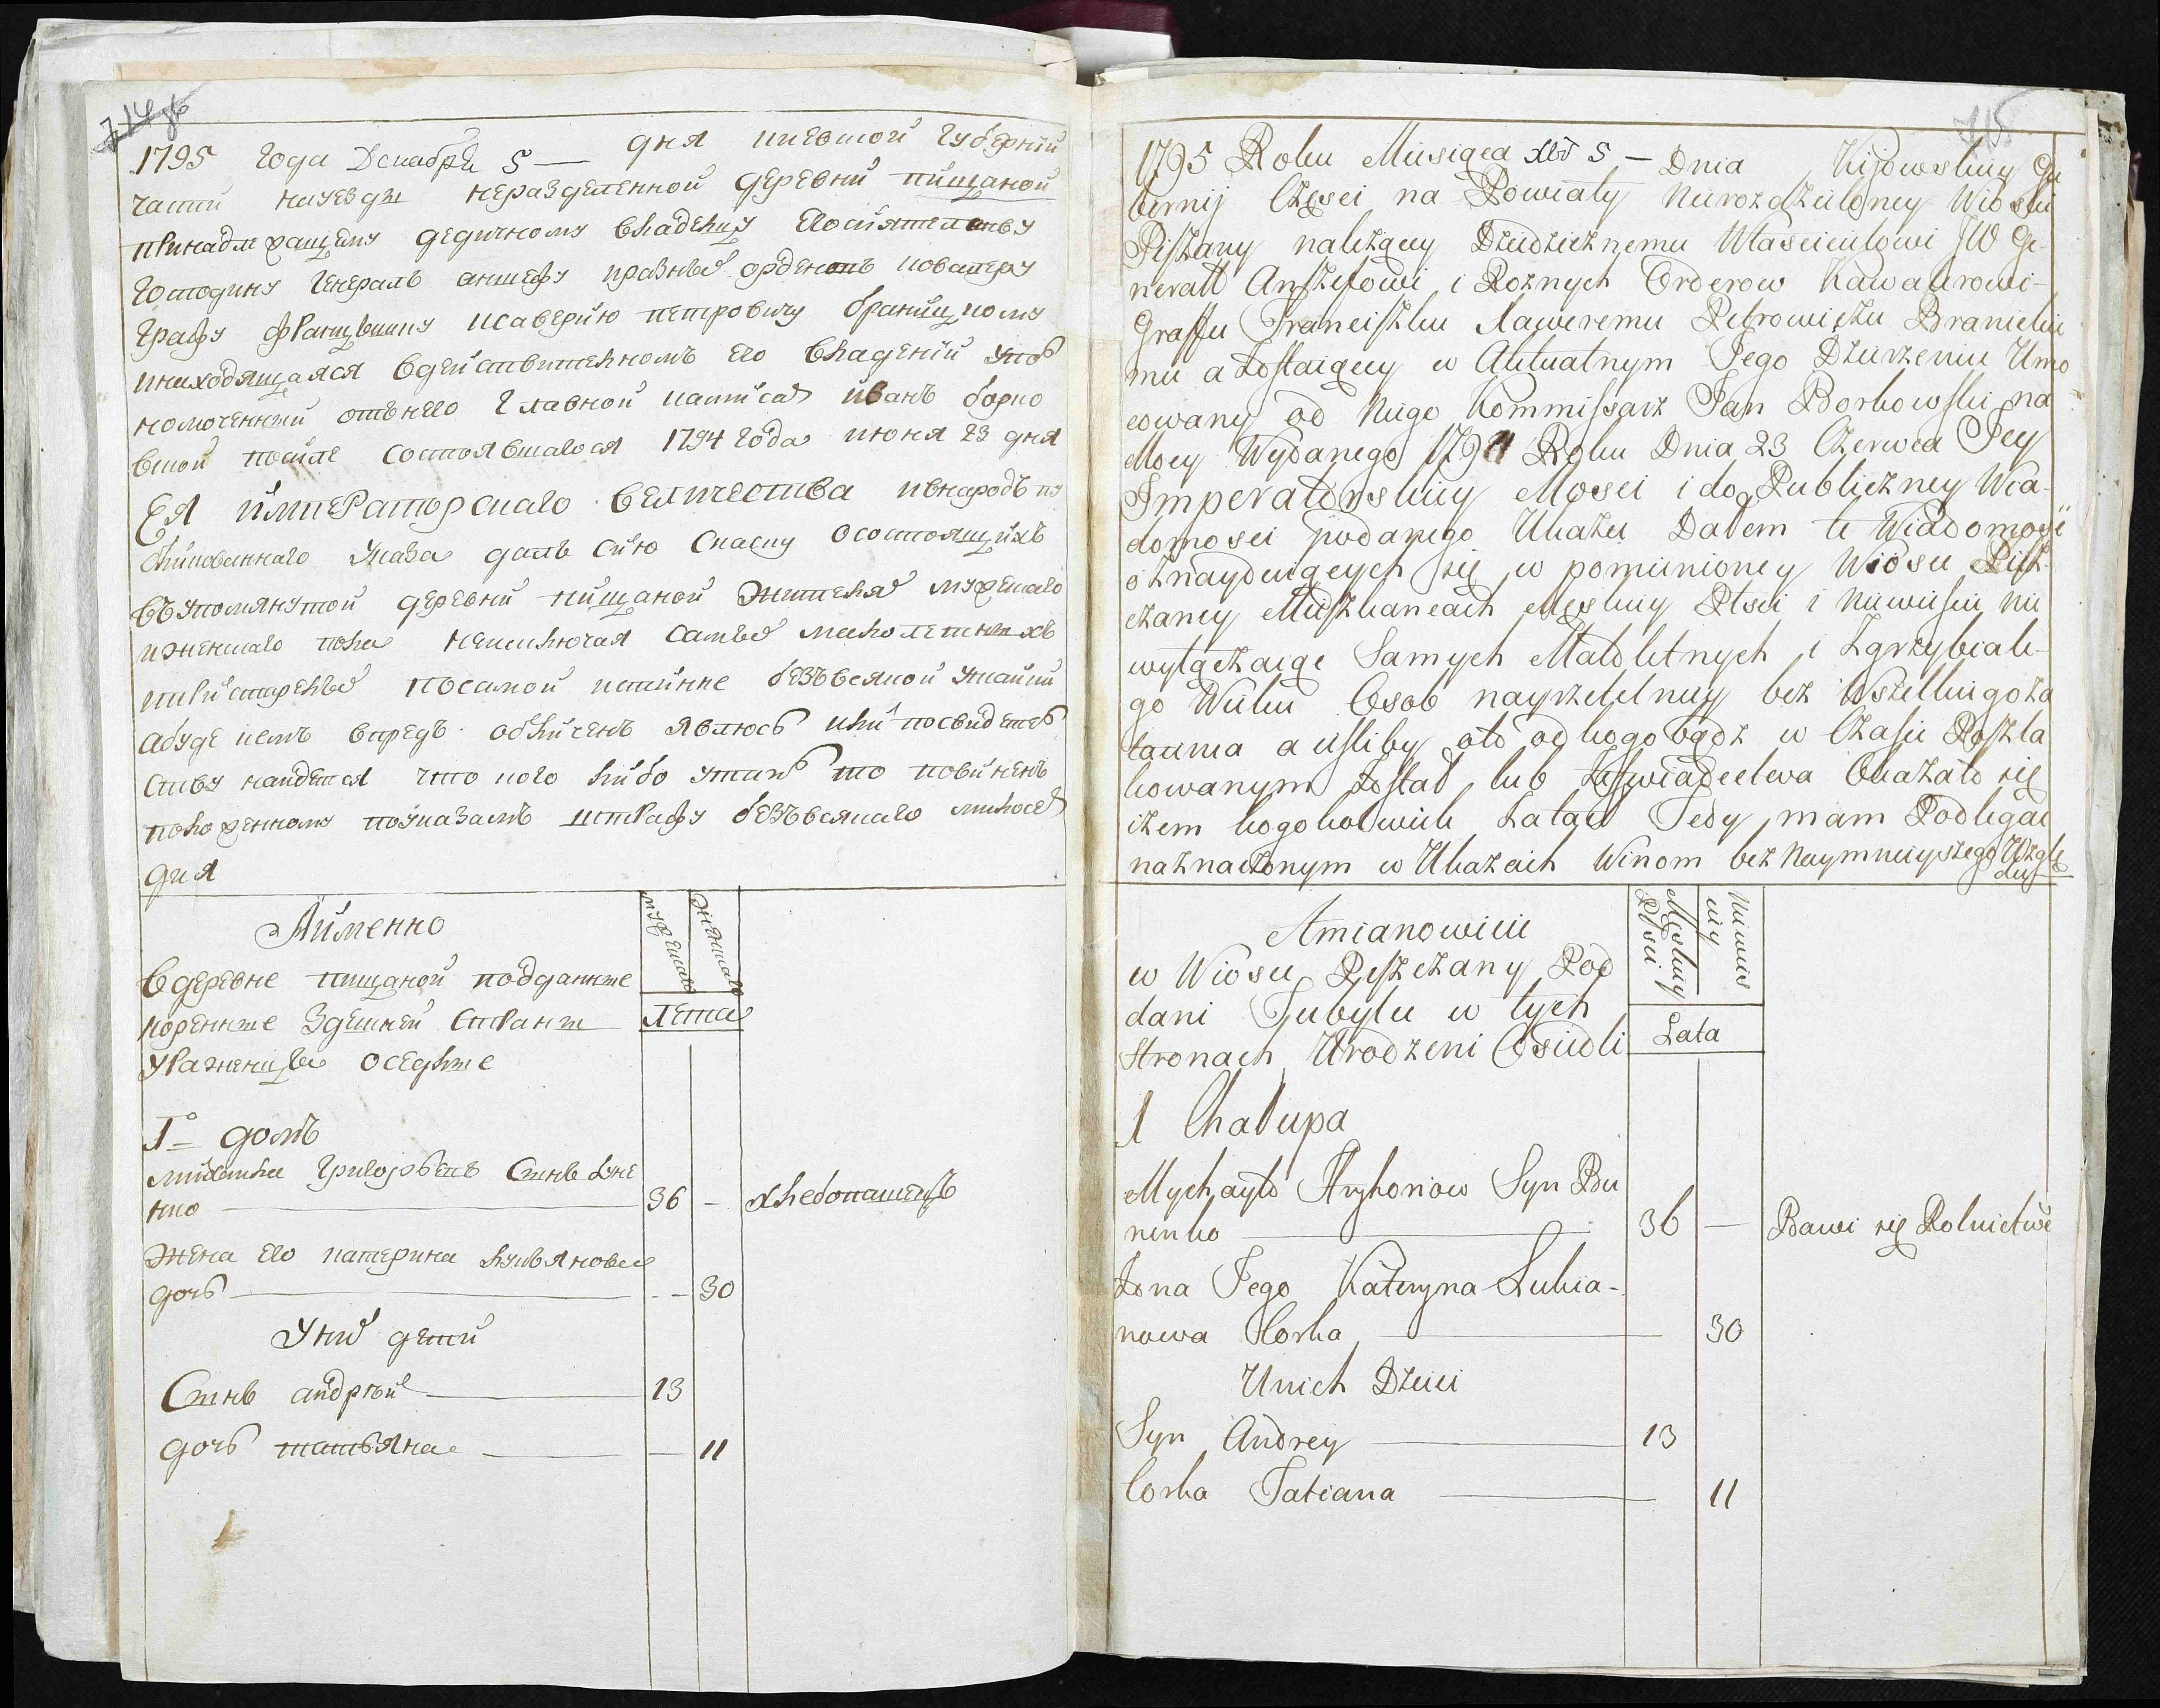 714 об
1795 года Декабря 5 — дня киевской губернïи
части науезды неразделенной деревни пищаной
принадлежащему дедичному владелцу Егосïятелству
Господину Генералъ аншефу иразныхъ орденовъ ковалеру
Графу францышку ксаверïю петровичу браницкому
инаходящаяся вдействителномъ его владенïи упол
номоченный отънего Главной камисаръ иванъ борко
вской посиле состоявшагося 1794 года июня 23 дня
Ея императорскаго величества ивнародъ пу
бликованнаго указа далъ сïю скаску осостоящихъ
въупомянутой деревни пищаной жителяхъ мужескаго
иженскаго пола неисключая самыхъ малолетныхъ
ипрïстарелыхъ посамой истинне безъвсякой утайки
абуде кемъ впредь обличенъ явлюсь или посвидетел
ству найдется что кого либо утаилъ то повиненъ
положенному поуказамъ штрафу безъвсякаго милосер
дия
Аименно
мужескаго
женскаго
Вдеревне пищаной подданные
коренные здешней страны
уроженцы оседлые
Лета
1º домъ
михайла григорьевъ сынъ
нко — 36 — хлебопашецъ
жена его катерина лукьянова
дочь — — 30
Уних дети
Сынъ андрей — 13
дочь татьяна — — 11
715
1795 Roku Miesiąca Xbr 5 — Dnia Kijowskiey Gu
bernij Częsci na Powiaty Nierozdzieloney Wioski
Piszczany należący Dziedzicznemu Włascicielowi JW Ge-
nerałł Anszefowi i Rożnych Orderow Kawalerowi-
Graffu Franciszku Xaweremu Petrowiczu Branickie
mu a Zostaiącey w Aktualnym Jego Dzierzeniu Umo
cowany od Niego Kommissarz Jan Borkowski na
Mocy Wydanego 1794 Roku Dnia 23 Czerwca Jey
Imperatorskiey Mosci i do Publiczney Wia-
domosci podanego Ukazu Dałem tę Wiadomosć
o znayduiących się w pomienioney Wiosce Pisz-
czaney Mieszkancach Męskiey Płsci i Niewieskiey nie
wyłączaiąc Samych Małoletnych i Zgrzybiałe-
go Wieku Osob nayrzetelniey bez Wszelkiego Za
taienia a iesliby oto od kogo bądz w Czasie Poszla
kowanym został lub Zeswiadectwa Okazało się
iżem kogokolwiek Zataił Tedy mam Podlegać
naznaczonym w Ukazach Winom bez Naymnieyszego Wzglę
du
Amianowicie
Męskiey
Płsci
Niewies
ciey
w Wiosce Piszczany Pod
dani Tubylce w tych
Stronach Urodzeni Osiedli
Lata
1 Chałupa
Mychayło Hryhoriow Syn
nenko — 36 — Bawi się Rolnictwe
Zona Jego Kateryna Lukia-
nowa Corka — 30
Unich Dzieci
Syn Andrey — 13
Corka Tatiana — 11